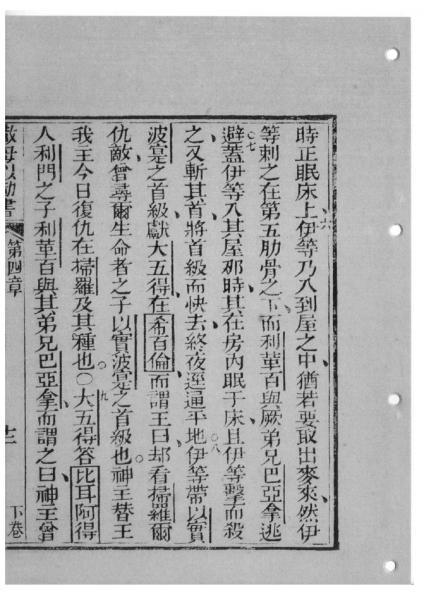 時正眠床上六伊等乃入到屋之中猶若要取出麥來然伊
等刺之在第五肋骨之下而利華百與厥弟兄巴亞拿逃
避七蓋伊等入其屋那時其在房內眠于床且伊等擊而殺
之又斬其首將首級而快去終夜逕逼平地八伊等帶以實
波寔之首級獻大五得在希百倫而謂王曰却看掃羅爾
仇敵曾尋爾生命者之子以實波寔之首級也神主替王
我王今日復仇在掃羅及其種也○九大五得答比耳阿得
人利門之子利華百與其弟兄巴亞拿而謂之曰神主曾
第四章
十二
下卷